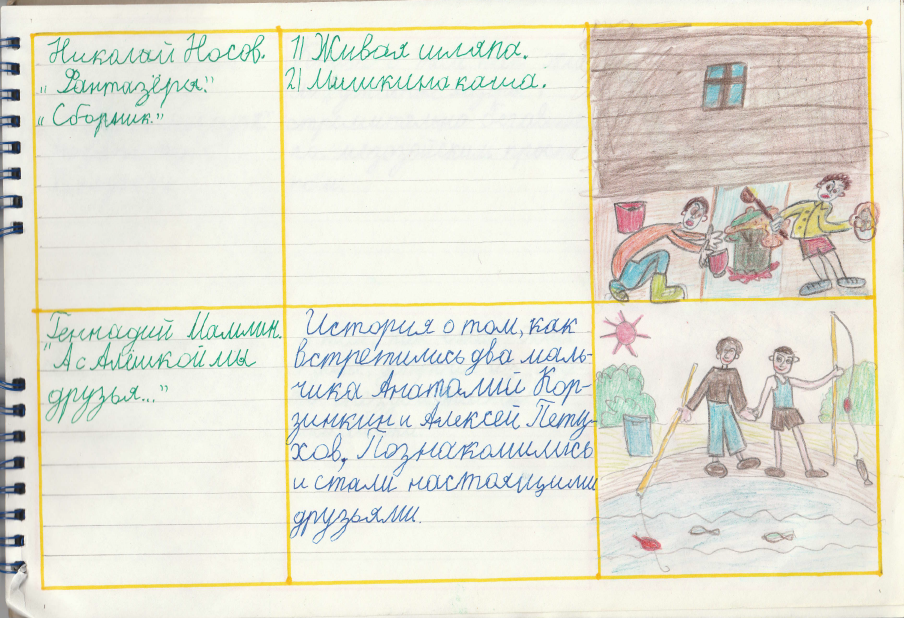 Николай Носов.
„Фантазёры."
„Сборник."
1) Живая шляпа.
2) Мишкина каша.
Геннадий Мамлин.
"А с Алёшкой мы
друзья..."
История о том, как
встретились два маль-
чика Анатолий Кор-
зинкин и Алексей Пету-
хов. Познакомились
и стали настоящими
друзьями.